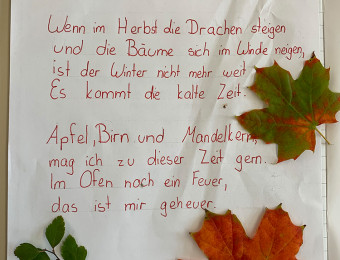 Wenn im Herbst die Drachen steigen
und die Bäume sich im Winde neigen,
ist der Winter nicht mehr weit.
Es kommt die kalte Zeit.
Apfel, Birn und Mandelkern,
mag ich zu dieser Zeit gern.
Im Ofen noch ein Feuer,
das ist mir geheuer.